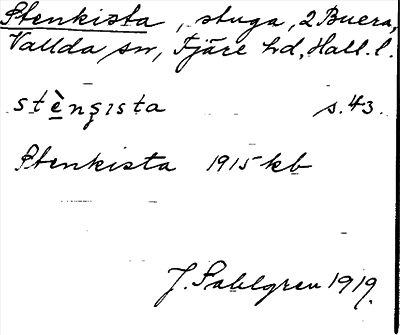 Stenkista, stuga, 2 Buera,
Vallda sn, Fjäre hd, Hall. l.
stè̲nȿısta s. 43.
Stenkista 1915 kb
J. Sahlgren 1919.